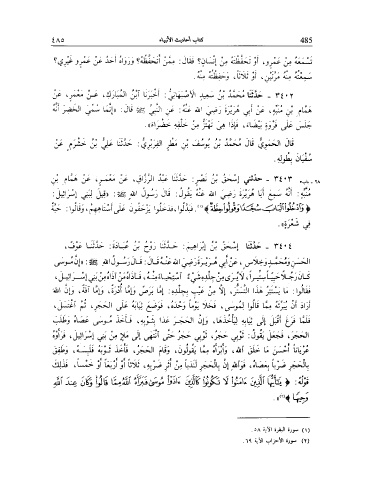 485
كتاب أحاديث الأنبياء
٤٨٥
تَسْمَعَهُ مِنْ عَمْرٍو، أَوْ تَحَفَّظْتَهُ مِنْ إِنْسَانٍ؟ فَقَالَ: مِمَّنْ أَتَحَفَّظُهُ؟ وَرَوَاهُ أَحَدٌ عَنْ عَمْرٍو غَيْرِي؟
سَمِعْتُهُ مِنْهُ مَرَّتَيْنِ، أَوْ ثَلَاثًا، وَحَفِظْتُهُ مِنْهُ.
٣٤٠٢ - حَدَّثَنَا مُحَمَّدُ بْنُ سَعِيدٍ الْأَصْبَهَانِيُّ: أَخْبَرَنَا ابْنُ الْمُبَارَكِ، عَنْ مَعْمَرٍ، عَنْ
هَمَّامِ بْنِ مُنَبِّهٍ، عَنْ أَبِي هُرَيْرَةَ رَضِيَ اللهُ عَنْهُ: عَنِ النَّبِيِّ ﷺ قَالَ: «إِنَّمَا سُمِّيَ الْخَضِرَ أَنَّهُ
جَلَسَ عَلَى فَرْوَةٍ بَيْضَاءَ، فَإِذَا هِيَ تَهْتَزُّ مِنْ خَلْفِهِ خَضْرَاءَ».
قَالَ الْحَمَوِيُّ قَالَ مُحَمَّدُ بْنُ يُوسُفَ بْنِ مَطَرٍ الْفِرَبْرِيُّ: حَدَّثَنَا عَلِيُّ بْنُ خَشْرَمٍ عَنْ
سُفْيَانَ بِطُولِهِ.
٣٤٠٣ - حَدَّثَنِي إِسْحَقُ بْنُ نَصْرٍ: حَدَّثَنَا عَبْدُ الرَّزَّاقِ، عَنْ مَعْمَرٍ، عَنْ هَمَّامِ بْنِ
مُنَبِّهٍ: أَنَّهُ سَمِعَ أَبَا هُرَيْرَةَ رَضِيَ اللهُ عَنْهُ يَقُولُ: قَالَ رَسُولُ اللهِ ﷺ: «قِيلَ لِبَنِي إِسْرَائِيلَ:
﴿وَادْخُلُوا الْبَابَ سُجَّدًا وَقُولُوا حِطَّةٌ﴾(١). فَبَدَّلُوا، فَدَخَلُوا يَزْحَفُونَ عَلَى أَسْتَاهِهِمْ، وَقَالُوا: حَبَّةٌ
فِي شَعْرَةٍ».
٣٤٠٤ - حَدَّثَنَا إِسْحَقُ بْنُ إِبْرَاهِيمَ: حَدَّثَنَا رَوْحُ بْنُ عُبَادَةَ: حَدَّثَنَا عَوْفٌ،
الْحَسَنِ وَمُحَمَّدٍ وَخِلَاسٍ، عَنْ أَبِي هُرَيْرَةَ رَضِيَ اللهُ عَنْهُ قَالَ: قَالَ رَسُولُ اللهِ ﷺ: «إِنَّ مُوسَى
كَانَ رَجُلًا حَيِيًّا سِتِّيرًا، لَا يُرَى مِنْ جِلْدِهِ شَيْءٌ اسْتِحْيَاءً مِنْهُ، فَآذَاهُ مَنْ آذَاهُ مِنْ بَنِي إِسْرَائِيلَ،
فَقَالُوا: مَا يَسْتَتِرُ هَذَا التَّسَتُّرَ، إِلَّا مِنْ عَيْبٍ بِجِلْدِهِ: إِمَّا بَرَصٌ وَإِمَّا أُدْرَةٌ، وَإِمَّا آفَةٌ، وَإِنَّ اللهَ
أَرَادَ أَنْ يُبَرِّئَهُ مِمَّا قَالُوا لِمُوسَى، فَخَلَا يَوْمًا وَحْدَهُ، فَوَضَعَ ثِيَابَهُ عَلَى الْحَجَرِ، ثُمَّ اغْتَسَلَ،
فَلَمَّا فَرَغَ أَقْبَلَ إِلَى ثِيَابِهِ لِيَأْخُذَهَا، وَإِنَّ الْحَجَرَ عَدَا بِثَوْبِهِ، فَأَخَذَ مُوسَى عَصَاهُ وَطَلَبَ
الْحَجَرَ، فَجَعَلَ يَقُولُ: ثَوْبِي حَجَرُ، ثَوْبِي حَجَرُ حَتَّى انْتَهَى إِلَى مَلَإٍ مِنْ بَنِي إِسْرَائِيلَ، فَرَأَوْهُ
عُرْيَانًا أَحْسَنَ مَا خَلَقَ اللهُ، وَأَبْرَأَهُ مِمَّا يَقُولُونَ، وَقَامَ الْحَجَرُ، فَأَخَذَ ثَوْبَهُ فَلَبِسَهُ، وَطَفِقَ
بِالْحَجَرِ ضَرْبًا بِعَصَاهُ، فَوَاللهِ إِنَّ بِالْحَجَرِ لَنَدَبًا مِنْ أَثَرِ ضَرْبِهِ، ثَلَاثًا أَوْ أَرْبَعًا أَوْ خَمْسًا، فَذَلِكَ
قَوْلُهُ: ﴿يَا أَيُّهَا الَّذِينَ آمَنُوا لَا تَكُونُوا كَالَّذِينَ آذَوْا مُوسَىٰ فَبَرَّأَهُ اللَّهُ مِمَّا قَالُوا وَكَانَ عِندَ اللَّهِ
وَجِيهًا﴾(٢)».
(١) سورة البقرة الآية ٥٨.
(٢) سورة الأحزاب الآية ٦٩.